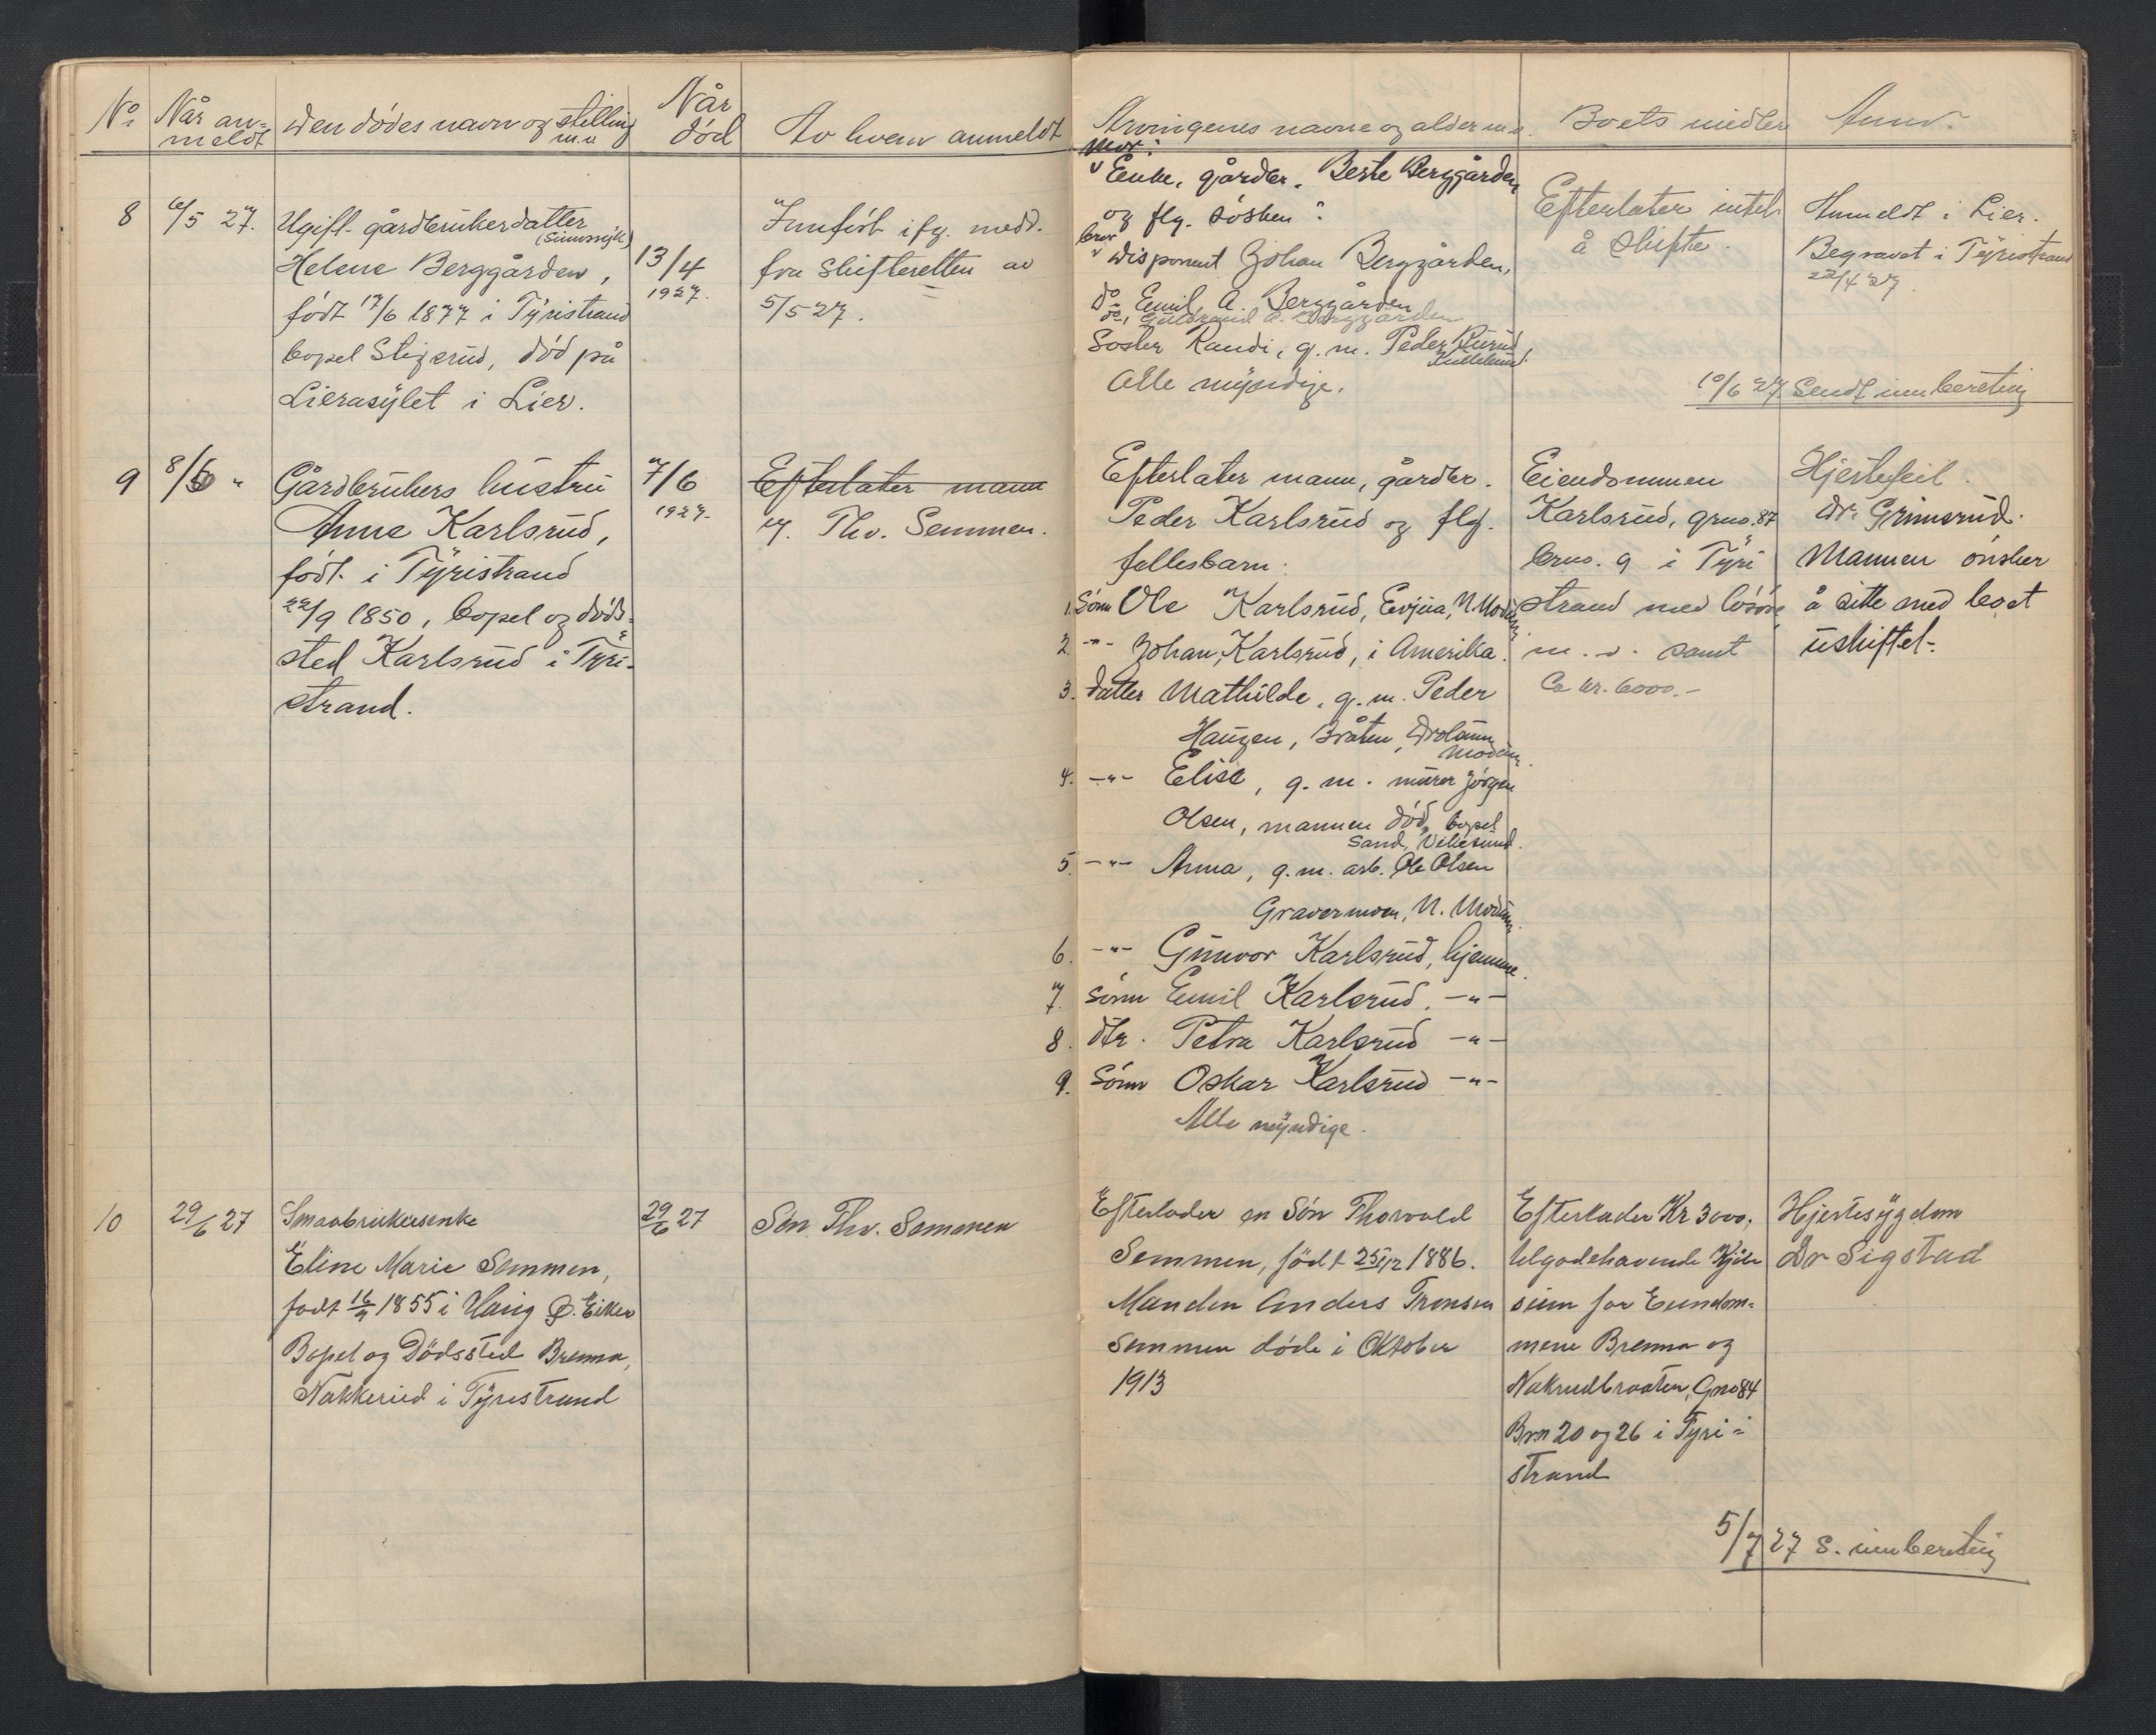 No. Når an- Den dødes navn og stilling Når Av hvem anmeldt Arvingenes navne og alder m.v. Boets midler Anm.
meldt m.v. død
8 6/5 27. Ugift gårdbrukerdatter
(sinnssyk)
Helene Berggården,
født 17/6 1877 i Tyristrand
bopel Stigsrud, død på
Lierasylet i Lier.
13/4
1927.
Innført ifg. medd.
fra skifteretten av
5/5 27.
Mor:
Enke, gårdbr. Beate Berggården
og flg. søsken:
bror
Disponent Johan Berggården,
do Emil A. Berggården
do, Guldbrand A. Berggården
Søster Randi, g. m. Peder Burud,
Alle myndige.
Efterlater intet
å skifte.
Anmeldt i Lier.
Begravet i Tyristrand
22/4 27.
10/6 27 Sendt innberetnig
9 8/6 " Gårdbrukers hustru
Anne Karlsrud,
født i Tyristrand
22/9 1850, bopel og døds-
sted Karlsrud i Tyri-
strand.
7/6
1927.
Efterlater mann
v. Thv. Semmen.
Efterlater mann, gårdbr.
Peder Karlsrud og flg.
fellesbarn:
1. Sønn Ole Karlsrud, Evjua, N. Modum
2. -"- Johan Karlsrud, i Amerika.
3. datter Mathilde, g. m. Peder
Haugen, Bråten, Drolsum
Modum.
4. -"- Elise, g. m. murer Jørgen
Olsen, mannen død, bopel
Sand, Vikesund.
5. -"- Anna, g. m. arb. Ole Olsen
Gravermoen, N. Modum.
6. -"- Gunvor Karlsrud, hjemme.
7. sønn Emil Karlsrud, -"-
8. dtr. Petra Karlsrud -"-
9. Sønn Oskar Karlsrud -"-
Alle myndige.
Eiendommen
Karlsrud, grno. 87
brno. 9 i Tyri
strand med løsøre
m. v. samt
Ca kr. 6000.-
Hjertefeil.
Dr. Grimsrud.
Mannen ønsker
å sitte med boet
uskiftet.
10 29/6 27 Smaabrukerenke
Eline Marie Semmen,
født 16/9 1855 i Haug Ø. Eiker
Bopel og Dödssted Brenna,
Nakkerud i Tyristrand
29/6 27
Søn Thv. Semmen
Efterlader en Søn Thorvald
Semmen, född 25/12 1886.
Manden Anders Tronsen
Semmen døde i Oktober
1913
Efterlader Kr 3000,
tilgodehavende Kjöbe
sum for Eiendom-
mene Brenna og
Nakrudbraaten, Gno 84
Brn 20 og 26 i Tyri-
strand
Hjertesygdom
Dr Sigstad
5/7 27 S. innberetnig